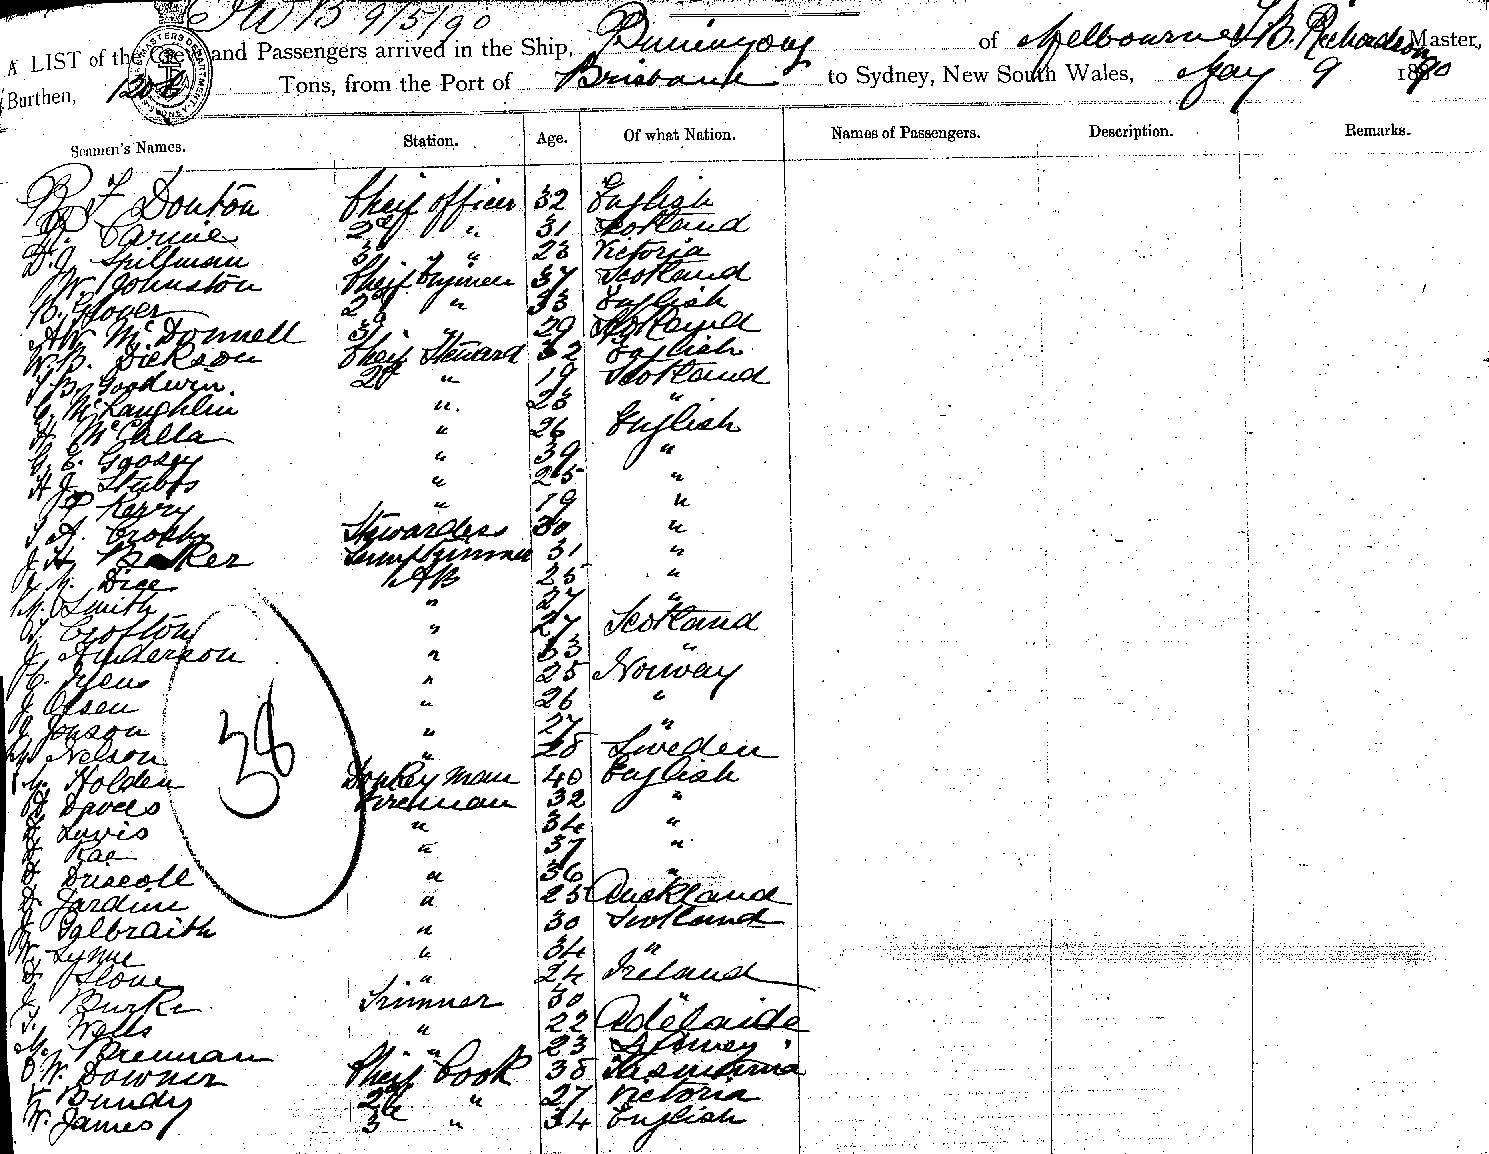 9/5/90
A LIST of the Crew and Passengers arrived in the Ship, Buninyong of Melbourne, T.B. Richardson Master,
Burthen, 1206 Tons, from the Port of Brisbane to Sydney, New South Wales, May 9 1890
Seamen's Names. Station. Age. Of what Nation. Names of Passengers. Description. Remarks.
F Donton Cheif officer 32 English
Carnie 2d " 31 Scotland
D.J. Spillman 3d " 23 Victoria
W Johnston Cheif Enginer 37 Scotland
Glover 2d " 33 English
A W McDonnell 3d " 29 Scotland
W.B. Dickson Cheif Steward 32 English
T B. Goodwin 2d " 19 Scotland
G. McLaughlin " 23 "
H McCalla " 26 English
G. E. Goosey " 39 "
H J. Stubbs " 25 "
P Kerry " 19 "
T A. Crosby Stewardess 30 "
J H Baker Lamp Trimmer 31 "
Dice AB 25 "
M. Smith " 27 "
T. Crofton " 27 Scotland
J. Anderson " 33 "
C. Iyens " 25 Norway
J Olsen " 26 "
J Jonson " 27 "
Nelson " 28 Sweden
Holden Donkey man 40 English
D Davies Fireman 32 "
Lewis " 34 "
Rae " 37 "
D Driscoll " 36 "
D. Jardine " 23 Auckland
J. Galbraith " 30 Scotland
W. Lynne " 34 "
Slone " 24 Ireland
J. Burke Trimner 30 "
T. Wells " 22 Adelaide
M. Brennan " 23 Sydney
O W Downer Cheif Cook 38 Tasmania
Bundy 2d " 27 Victoria
W. James 3d " 34 English
38